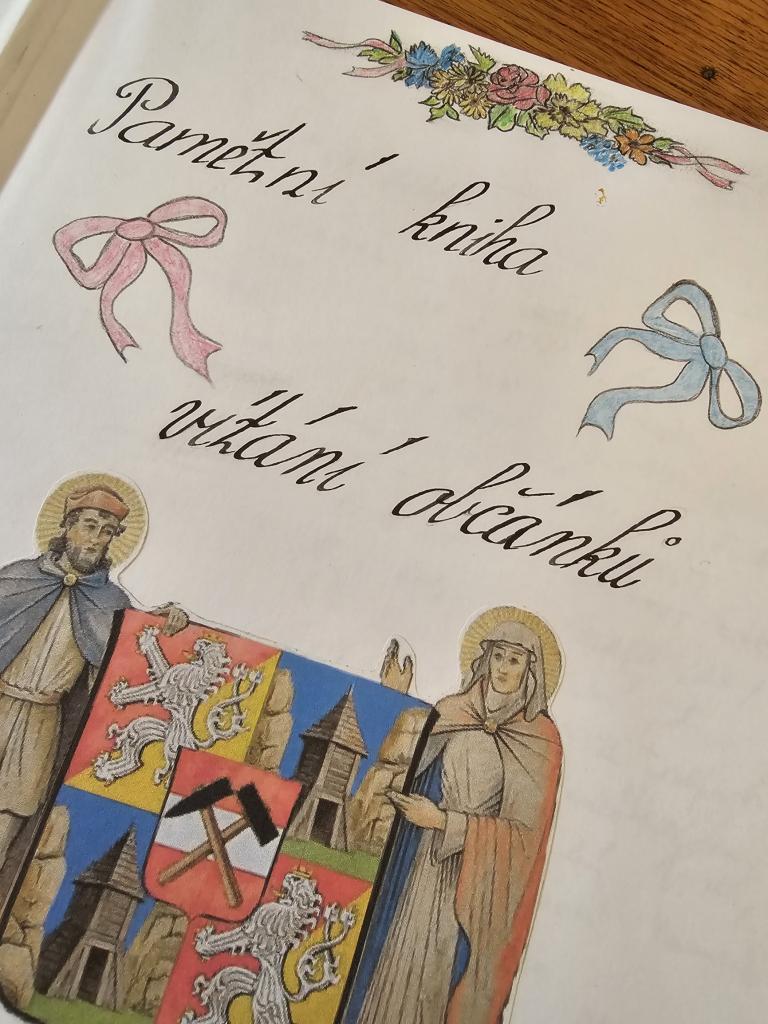 Pamětní kniha
vítání občánků